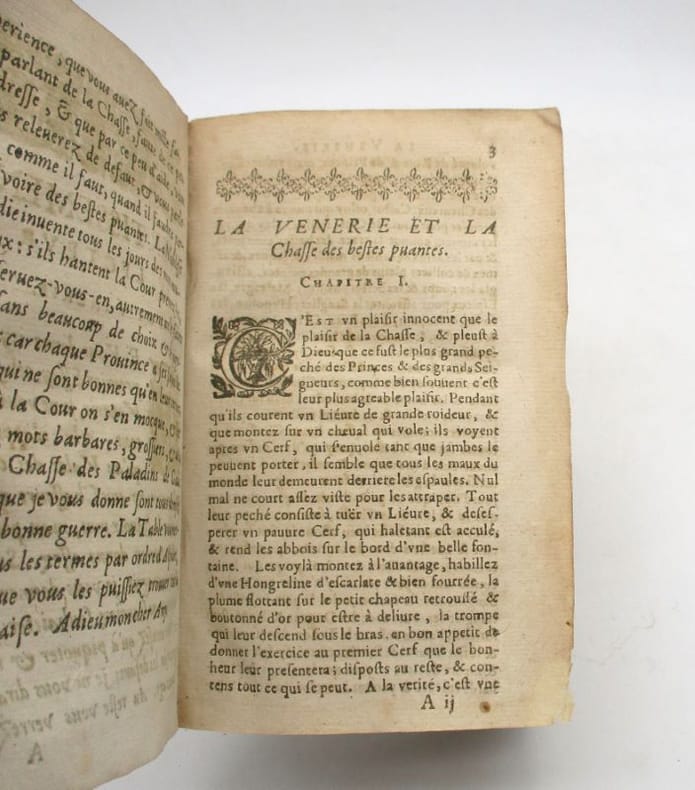 perience, que vous auez fait mille fois
parlant de la Chasse, faute de ce peu
dresse, & que par ce peu d'aide, vous
s releuerez de defaut, & vous
comme il faut, quand il faudra
voire des bestes puantes. La
die inuente tous les jours des
ux: s'ils hantent la Cour
seruez-vous-en, autrement
ans beaucoup de choix &
car chaque Prouince a ses
qui ne sont bonnes qu'en leur
à la Cour on s'en mocque,
mots barbares, grossiers,
Chasse des Paladins de
que je vous donne sont tous
bonne guerre. La Table
us les termes par ordre d'
ue vous les puissiez trouuer
aise. Adieu mon cher Amy
A
3
LA VENERIE ET LA
Chasse des bestes puantes.
CHAPITRE I.
C'EST vn plaisir innocent que le
plaisir de la Chasse, & pleust à
Dieu que ce fust le plus grand pe-
ché des Princes & des grands Sei-
gneurs, comme bien souuent c'est
leur plus agreable plaisir. Pendant
qu'ils courent vn Liéure de grande roideur, &
que montez sur vn cheual qui vole; ils voyent
apres vn Cerf, qui s'enuole tant que jambes le
peuuent porter, il semble que tous les maux du
monde leur demeurent derriere les espaules. Nul
mal ne court assez viste pour les attraper. Tout
leur peché consiste à tuër vn Liéure, & deses-
perer vn pauure Cerf, qui haletant est acculé,
& rend les abbois sur le bord d'vne belle fon-
taine. Les voylà montez à l'auantage, habillez
d'vne Hongreline d'escarlate & bien fourrée, la
plume flottant sur le petit chapeau retroussé &
boutonné d'or pour estre à deliure, la trompe
qui leur descend sous le bras, en bon appetit de
donner l'exercice au premier Cerf que le bon-
heur leur presentera; disposts au reste, & con-
tens tout ce qui se peut. A la verité, c'est vne
A ij